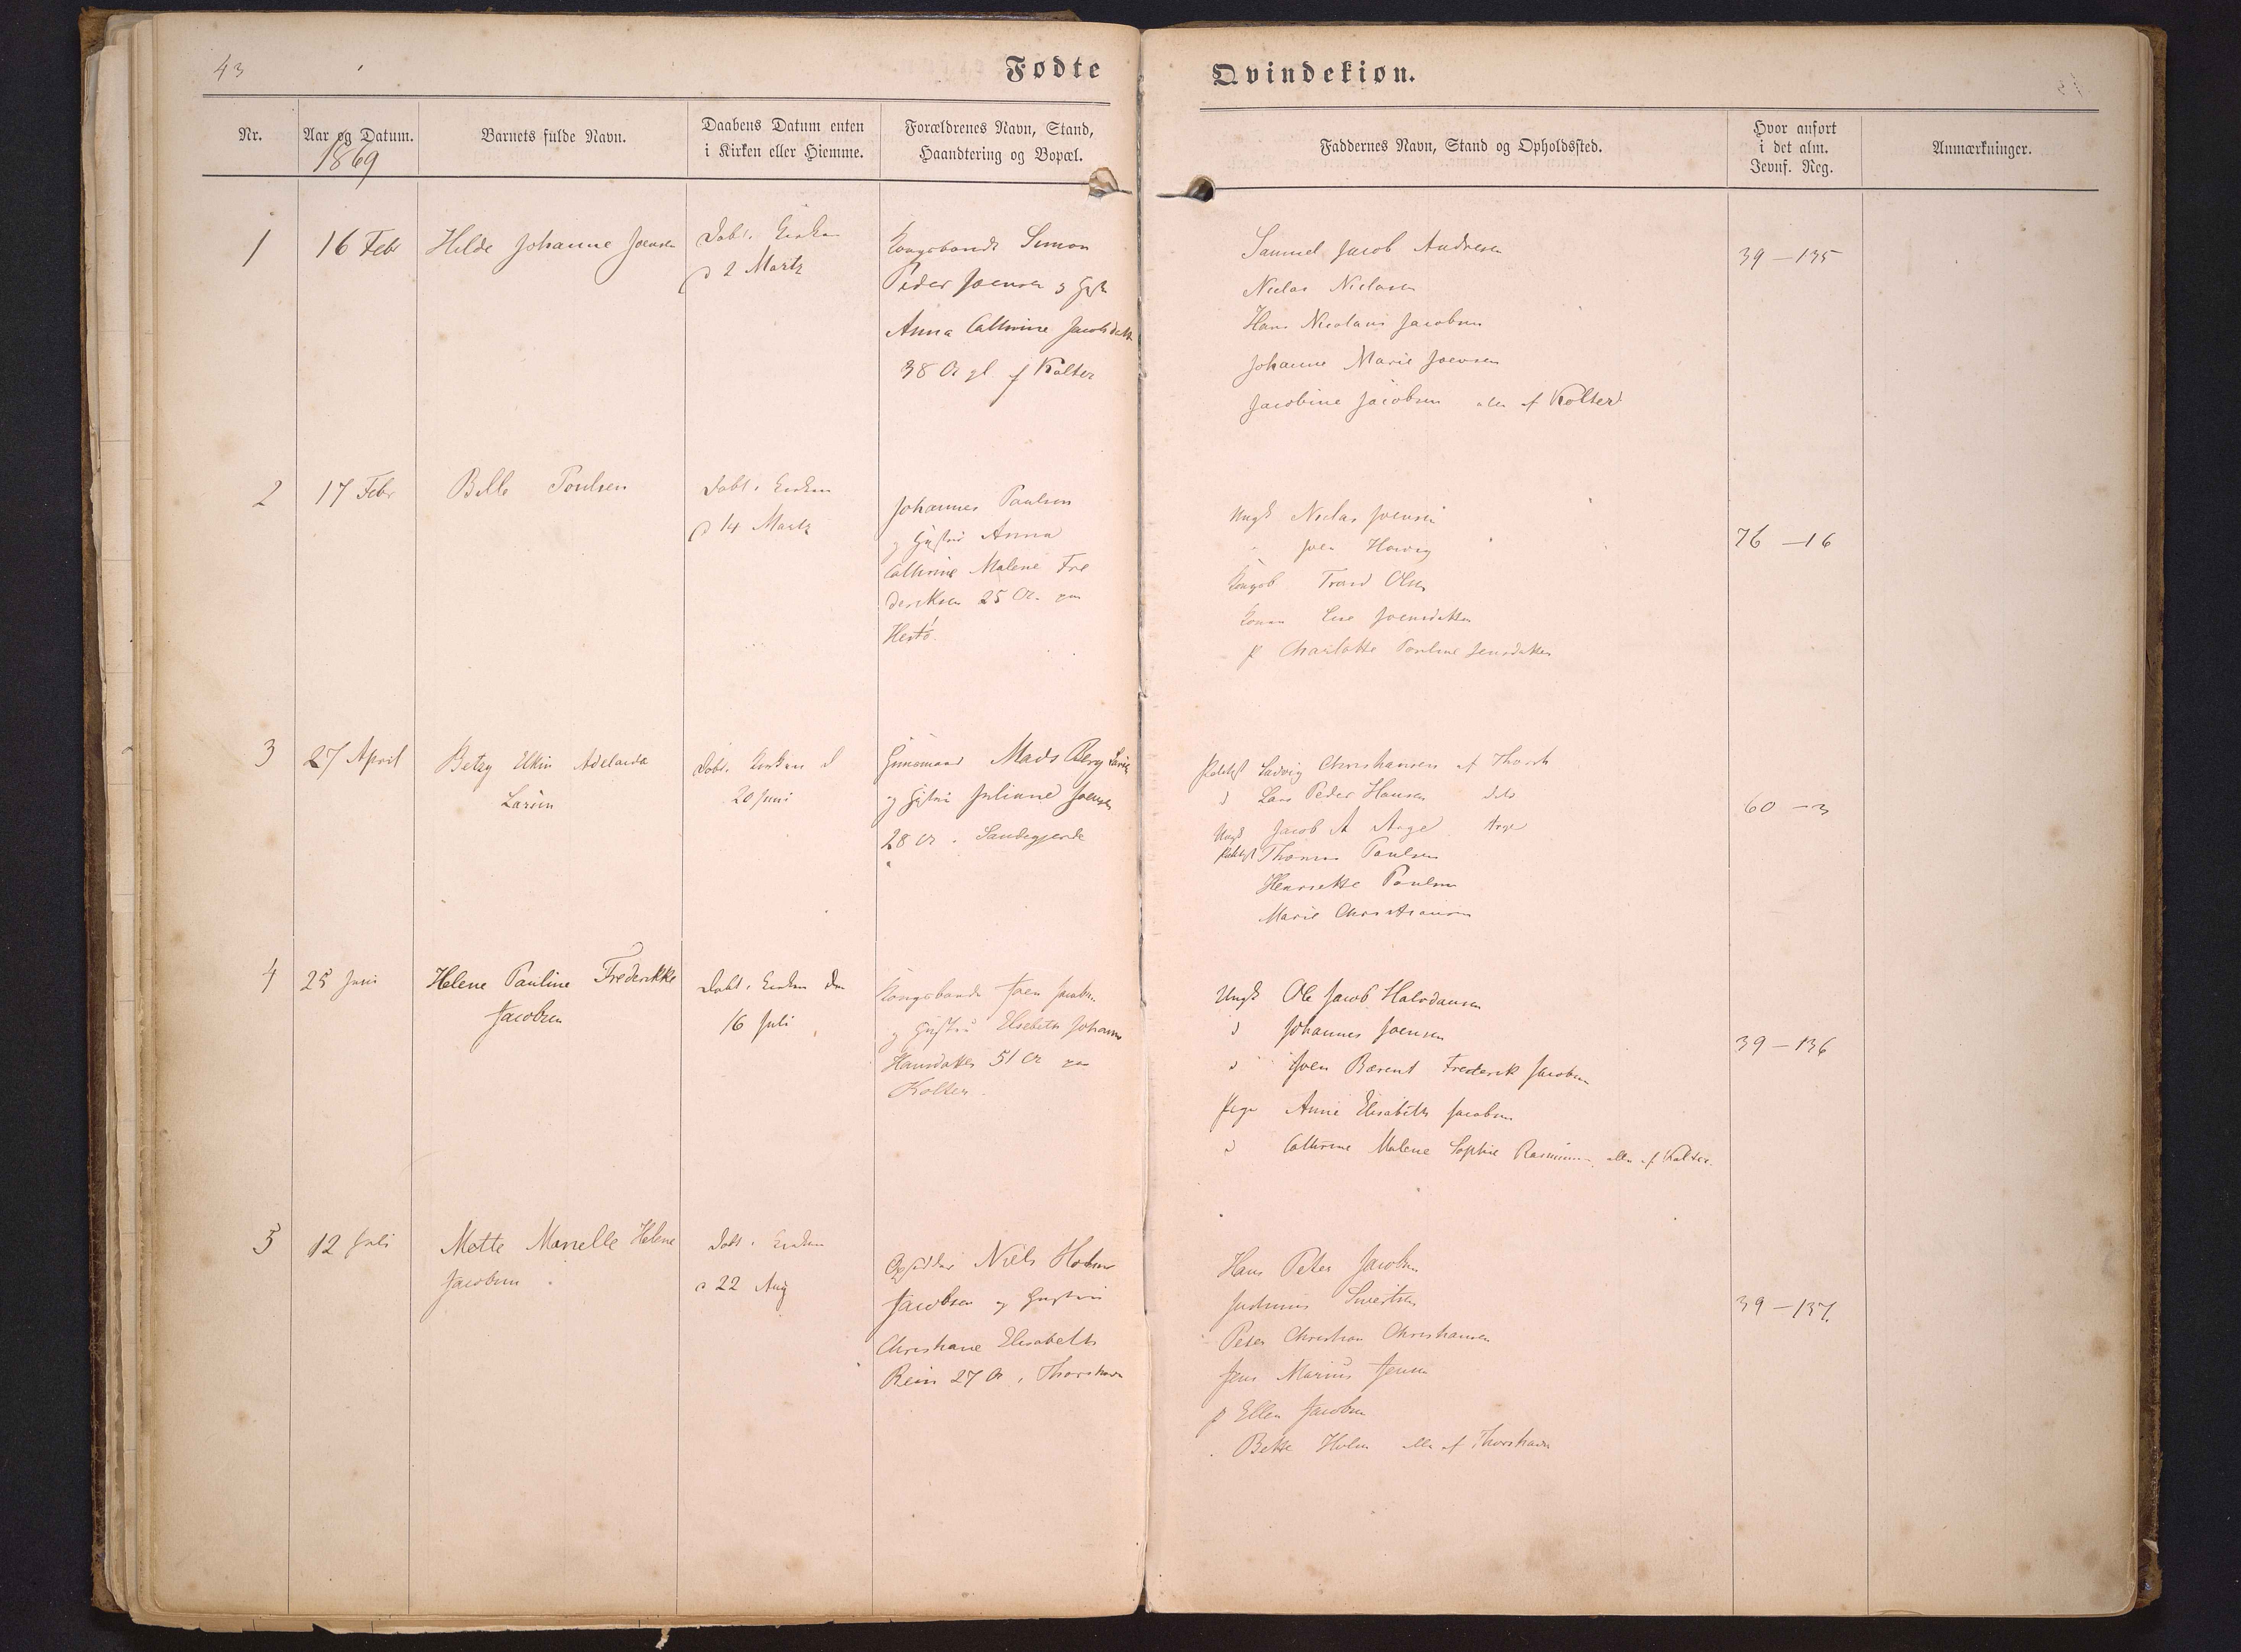 43
Fødte
Qvindekiøn.
Nr.
Aar og Datum.
1869
Barnets fulde Navn.
Daabens Datum enten
i Kirken eller Hiemme.
Forældrenes Navn, Stand,
Haandtering og Bopæl.
Faddernes Navn, Stand og Opholdssted.
Hvor anført
i det alm.
Jevnf. Reg.
Anmærkninger.
1
16 Febr
Hilde Johanne Joensen
Døbt i Kirken
d 2 Martz
Kongsbonde Simon
Peder Joensen og
Anna Cathrine Jacobsdatter
38 Ar gl af Kolter
Samuel Jacob Andresen
Niclas Niclasen
Hans Nicolaus Jacobsen
Johanne Marie Joensen
Jacobine Jacobsen alle af Kolter
39 — 135
2
17 Febr
Bille Poulsen
Døbt i Kirken
d 14 Martz
Johannes Paulsen
og Hustru Anna
Cathrine Malene Fre
deriksen 25 Ar paa
Hestø
Ungk Niclas Joensen
Joen
Kongsb Trond Olsen
Konen Joensdatter
p Charlotte Pouline Jensdatter
76 — 16
3
27 April
Betzy Elkin Adelaida
Larsen
Døbt i Kirken d
20 Juni
Mads Berg Larsen
og Hustru Juliane Joensen
28 Ar. Sandegjerde
Ludvig Christiansen af Thorsh
d Lars Peder Hansen dito
Ungk Jacob A Arge Arge
Thomas Paulsen
Henriette Paulsen
Marie Christiansen
60 — 3
4
25 Juni
Helene Pauline Frederikke
Jacobsen
Døbt i Kirken den
16 Juli
Kongsbonde Joen Jacobsen
og Hustru Elsebeth Johanne
Hansdatter 51 Ar paa
Kolter
Ungk Ole Jacob Halvdansen
d Johannes Joensen
d Joen Barent Frederik Jacobsen
Pige Anne Elisabeth Jacobsen
d Cathrine Malene Sophie Rasmussen alle af Kolter.
39 — 136
5
12 Juli
Mette Marielle Helene
Jacobsen
Døbt i Kirken
d 22 Aug
Opsidder Niels Holm
Jacobsen og Hustru
Christiane Elisabeth
Rein 27 Ar, Thorshavn
Hans Peter Jacobsen
Sivertsen
Peter Christian Christiansen
Jens Marius Jensen
p Ellen Jacobsen
Bette Holm alle af Thorshavn
39 — 137.